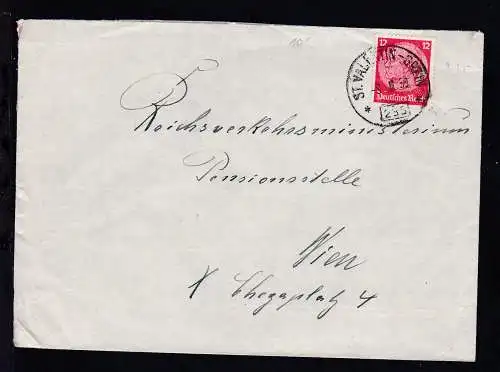 12 12
Deutsches Reich
ST. VALENTIN
233
Reichsverkehrsministerium
Pensionsstelle
Wien
X Ghegaplatz 4